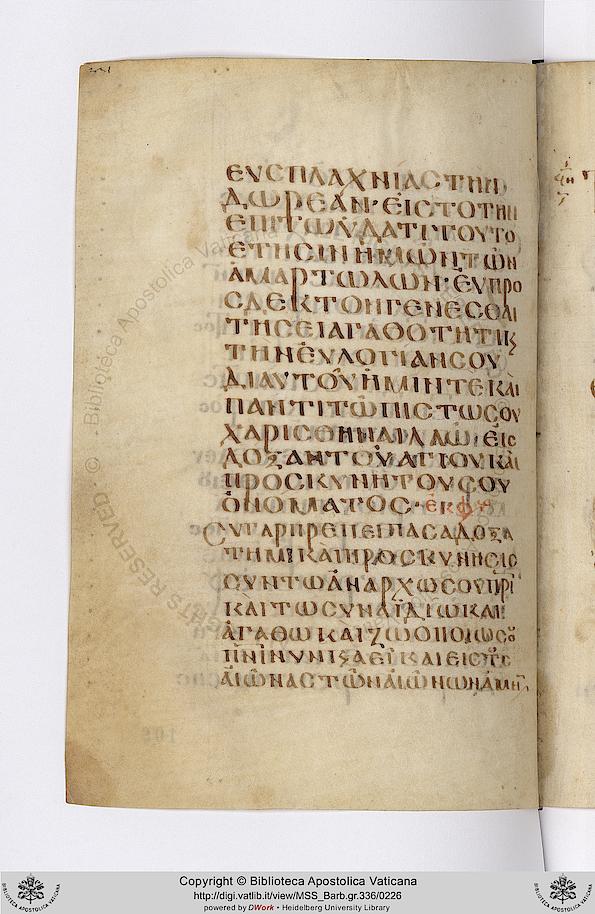 ΕΥΣΠΛΑΧΝΙΑΣ ΤΗΝ
ΔΩΡΕΑΝ· ΕΙΣ ΤΟ ΤΗΝ
ΕΠΙ ΤΩ ΥΔΑΤΙ ΤΟΥΤΩ
ΤΩΝ
ΑΜΑΡΤΩΛΩΝ· ΕΥΠΡΟ
ΣΔΕΚΤΟΝ ΓΕΝΕΣΘΑΙ
ΤΗ ΣΕΙ ΑΓΑΘΟΤΗΤΙ Ϗ
ΤΗΝ ΕΥΛΟΓΙΑΝ ΣΟΥ
ΔΙ ΑΥΤΟΥ ΗΜΙΝ ΤΕ ΚΑΙ
ΠΑΝΤΙ ΤΩ ΠΙΣΤΩ ΣΟΥ
ΧΑΡΙΣΘΗΝΑΙ ΛΑΩ· ΕΙΣ
ΔΟΞΑΝ ΤΟΥ ΑΓΙΟΥ ΚΑΙ
ΠΡΟΣΚΥΝΗΤΟΥ ΣΟΥ
ΟΝΟΜΑΤΟΣ· ΕΚΦΩ
ΣΥ ΓΑΡ ΠΡΕΠΕΙ ΠΑΣΑ ΔΟΞΑ
ΤΙΜΗ ΚΑΙ ΠΡΟΣΚΥΝΗΣΙΣ
ΣΥΝ ΤΩ ΑΝΑΡΧΩ ΣΟΥ ΠΡΙ
ΚΑΙ ΤΩ ΣΥΝΑΙΔΙΩ ΚΑΙ
ΑΓΑΘΩ ΚΑΙ ΖΩΟΠΟΙΩ ΣΟΥ
ΠΝΙ ΝΥΝ Ϗ ΑΕΙ ΚΑΙ ΕΙΣ ΤΟΥΣ
ΑΙΩΝΑΣ ΤΩΝ ΑΙΩΝΩΝ ΑΜΗΝ
Copyright © Biblioteca Apostolica Vaticana
http://digi.vatlib.it/view/MSS_Barb.gr.336/0226
powered by DWork • Heidelberg University Library